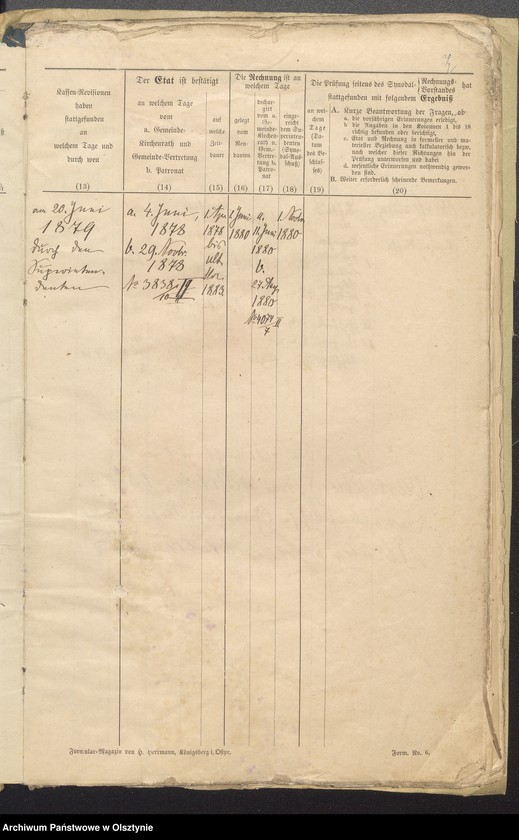 Kassen-Revisionen
haben
stattgefunden
an
welchem Tage und
durch wen
(13)
Der Etat ist bestätigt
an welchem Tage
vom
a. Gemeinde-
Kirchenrath und
Gemeinde-Vertretung
b. Patronat
(14)
auf
welche
Zeit-
dauer
(15)
Die Rechnung ist an
welchem Tage
gelegt
vom
Ren-
danten
(16)
dechar-
girt
vom a.
Ge-
meinde-
Kirchen-
rath u.
Gem.-
Vertre-
tung b.
Patro-
nat
(17)
einge-
reicht
dem Su-
perinten-
denten
(Syno-
dal-Aus-
schuß)
(18)
Die Prüfung seitens des Synodal- Rechnungs- Vorstandes hat
stattgefunden mit folgendem Ergebniß
an wel-
chem
Tage
(Da-
tum
des Be-
schlus-
ses)
(19)
A. Kurze Beantwortung der Fragen, ob:
a. die vorjährigen Erinnerungen erledigt,
b. die Angaben in den Kolonnen 1 bis 18
richtig befunden oder berichtigt,
c. Etat und Rechnung in formeller und ma-
terieller Beziehung auch kalkulatorisch bezw.
nach welcher dieser Richtungen hin der
Prüfung unterworfen und dabei
d. wesentliche Erinnerungen nothwendig gewor-
den sind.
B. Weiter erforderlich scheinende Bemerkungen.
(20)
am 20. Juni
1879
durch den
Superinten-
denten
a. 4. Juni
1878
b. 29. Novbr.
1878
No 3838 II
10
1878
bis
ult.
1883
2 Juni
1880
a.
11. Juni
1880
b.
1880
7
1. Novbr.
1880
Formular-Magazin von H. Herrmann, Königsberg i. Ostpr.
Form. No. 6.
Archiwum Państwowe w Olsztynie